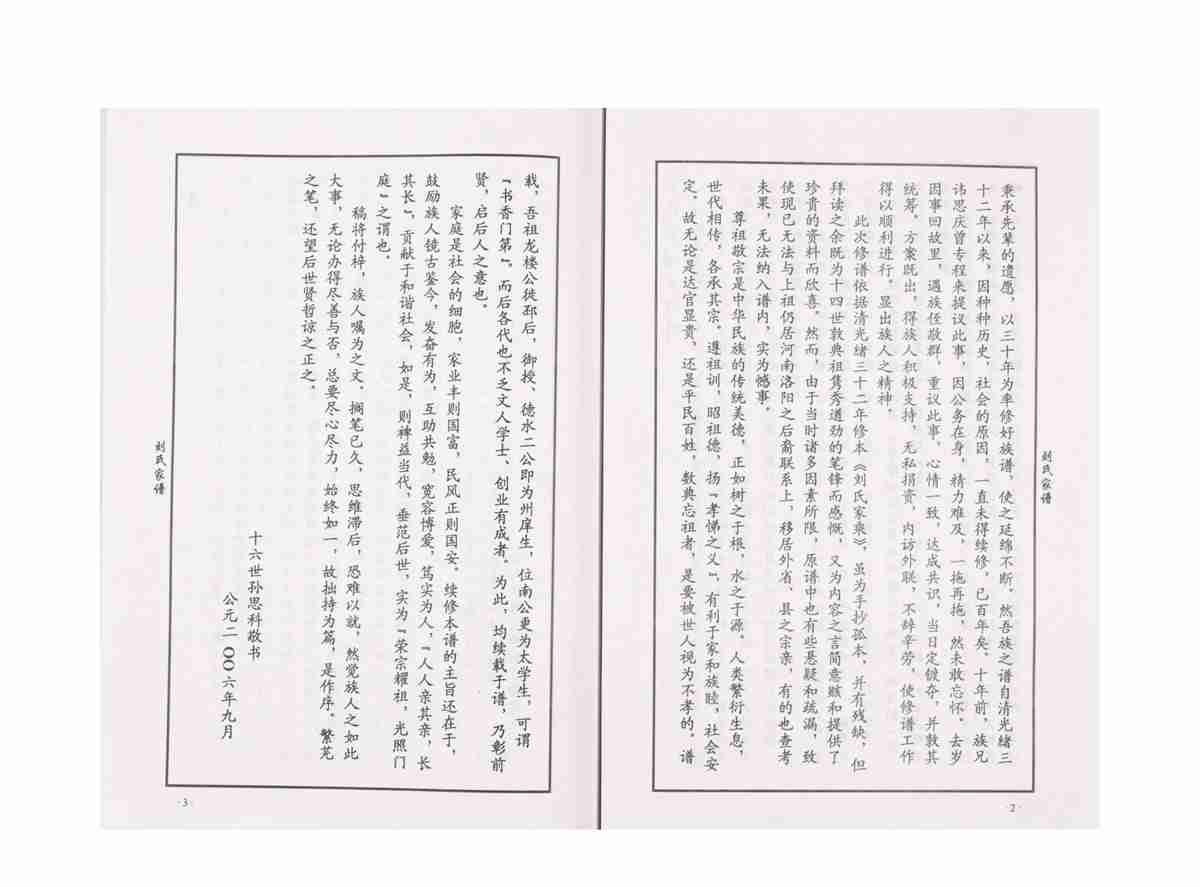 秉承先辈的遗愿，以三十年为率修好族谱，使之延绵不断。然吾族之谱自清光绪三
十二年以来，因种种历史、社会的原因，一直未得续修，已百年矣。十年前，族兄
讳思庆曾专程来提议此事，因公务在身，精力难及，一拖再拖，然未敢忘怀。去岁
因事回故里，遇族侄敬群，重议此事，心情一致，达成共识，当日定镀夺，并敦其
统筹。方案既出，得族人积极支持，无私捐资，内访外联，不辞辛劳，使修谱工作
得以顺利进行，显出族人之精神。
此次修谱依据清光绪三十二年修本《刘氏家乘》，虽为手抄孤本，并有残缺，但
拜读之余既为十四世敦典祖隽秀遒劲的笔锋而感慨，又为内容之言简意赅和提供了
珍贵的资料而欣喜。然而，由于当时诸多因素所限，原谱中也有些悬疑和疏漏，致
使现已无法与上祖仍居河南洛阳之后裔联系上，移居外省、县之宗亲，有的也查考
未果，无法纳入谱内，实为憾事。
尊祖敬宗是中华民族的传统美德，正如树之于根，水之于源。人类繁衍生息，
世代相传，各承其宗。遵祖训，昭祖德，扬“孝悌之义”，有利于家和族睦，社会安
定。故无论是达官显贵，还是平民百姓，数典忘祖者，是要被世人视为不孝的。谱
刘氏家谱
·2·
载，吾祖龙楼公徙邳后，御授、德水二公即为州庠生，位南公更为太学生，可谓
“书香门第”，而后各代也不乏文人学士、创业有成者。为此，均续载于谱，乃彰前
贤，启后人之意也。
家庭是社会的细胞，家业丰则国富，民风正则国安。续修本谱的主旨还在于，
鼓励族人镜古鉴今，发奋有为，互助共勉，宽容博爱，笃实为人，“人人亲其亲，长
其长”，贡献于和谐社会，如是，则裨益当代，垂范后世，实为“荣宗耀祖，光照门
庭”之谓也。
稿将付梓，族人嘱为之文。搁笔已久，思维滞后，恐难以就，然觉族人之如此
大事，无论办得尽善与否，总要尽心尽力，始终如一，故拙持为篇，是作序。繁芜
之笔，还望后世贤哲谅之正之。
十六世孙思科敬书
公元二〇〇六年九月
刘氏家谱
·3·